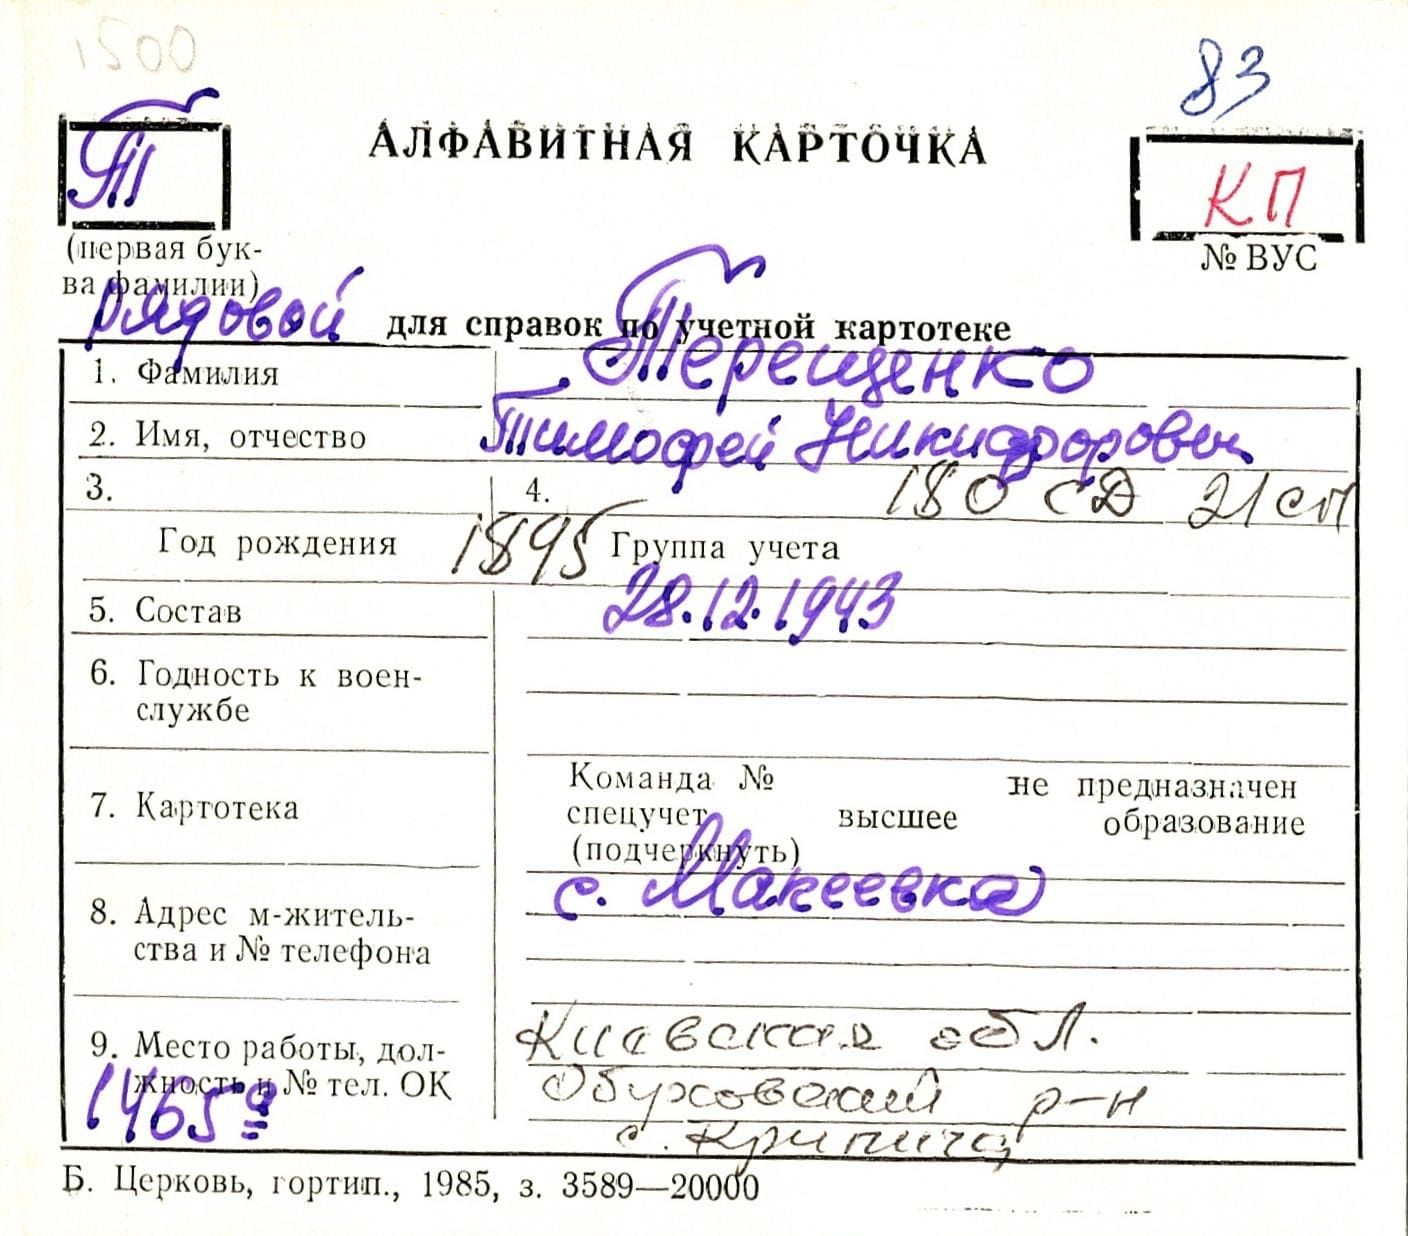 1500
83
Т
АЛФАВИТНАЯ КАРТОЧКА
КП
(первая бук-
ва фамилии)
№ ВУС
рядовой для справок по учетной картотеке
1. Фамилия Терещенко
2. Имя, отчество Тимофей Никифорович
3. 4. 180 сД 21 сп
Год рождения 1895 Группа учета
5. Состав 28.12.1943
6. Годность к воен-
службе
7. Картотека
Команда № не предназначен
спецучет высшее образование
(подчеркнуть)
с. Макеевка
8. Адрес м-житель-
ства и № телефона
Киевская обл.
9. Место работы, дол-
жность и № тел. ОК
Обуховский р-н
1465
с.
Б. Церковь, гортип., 1985, з. 3589—20000